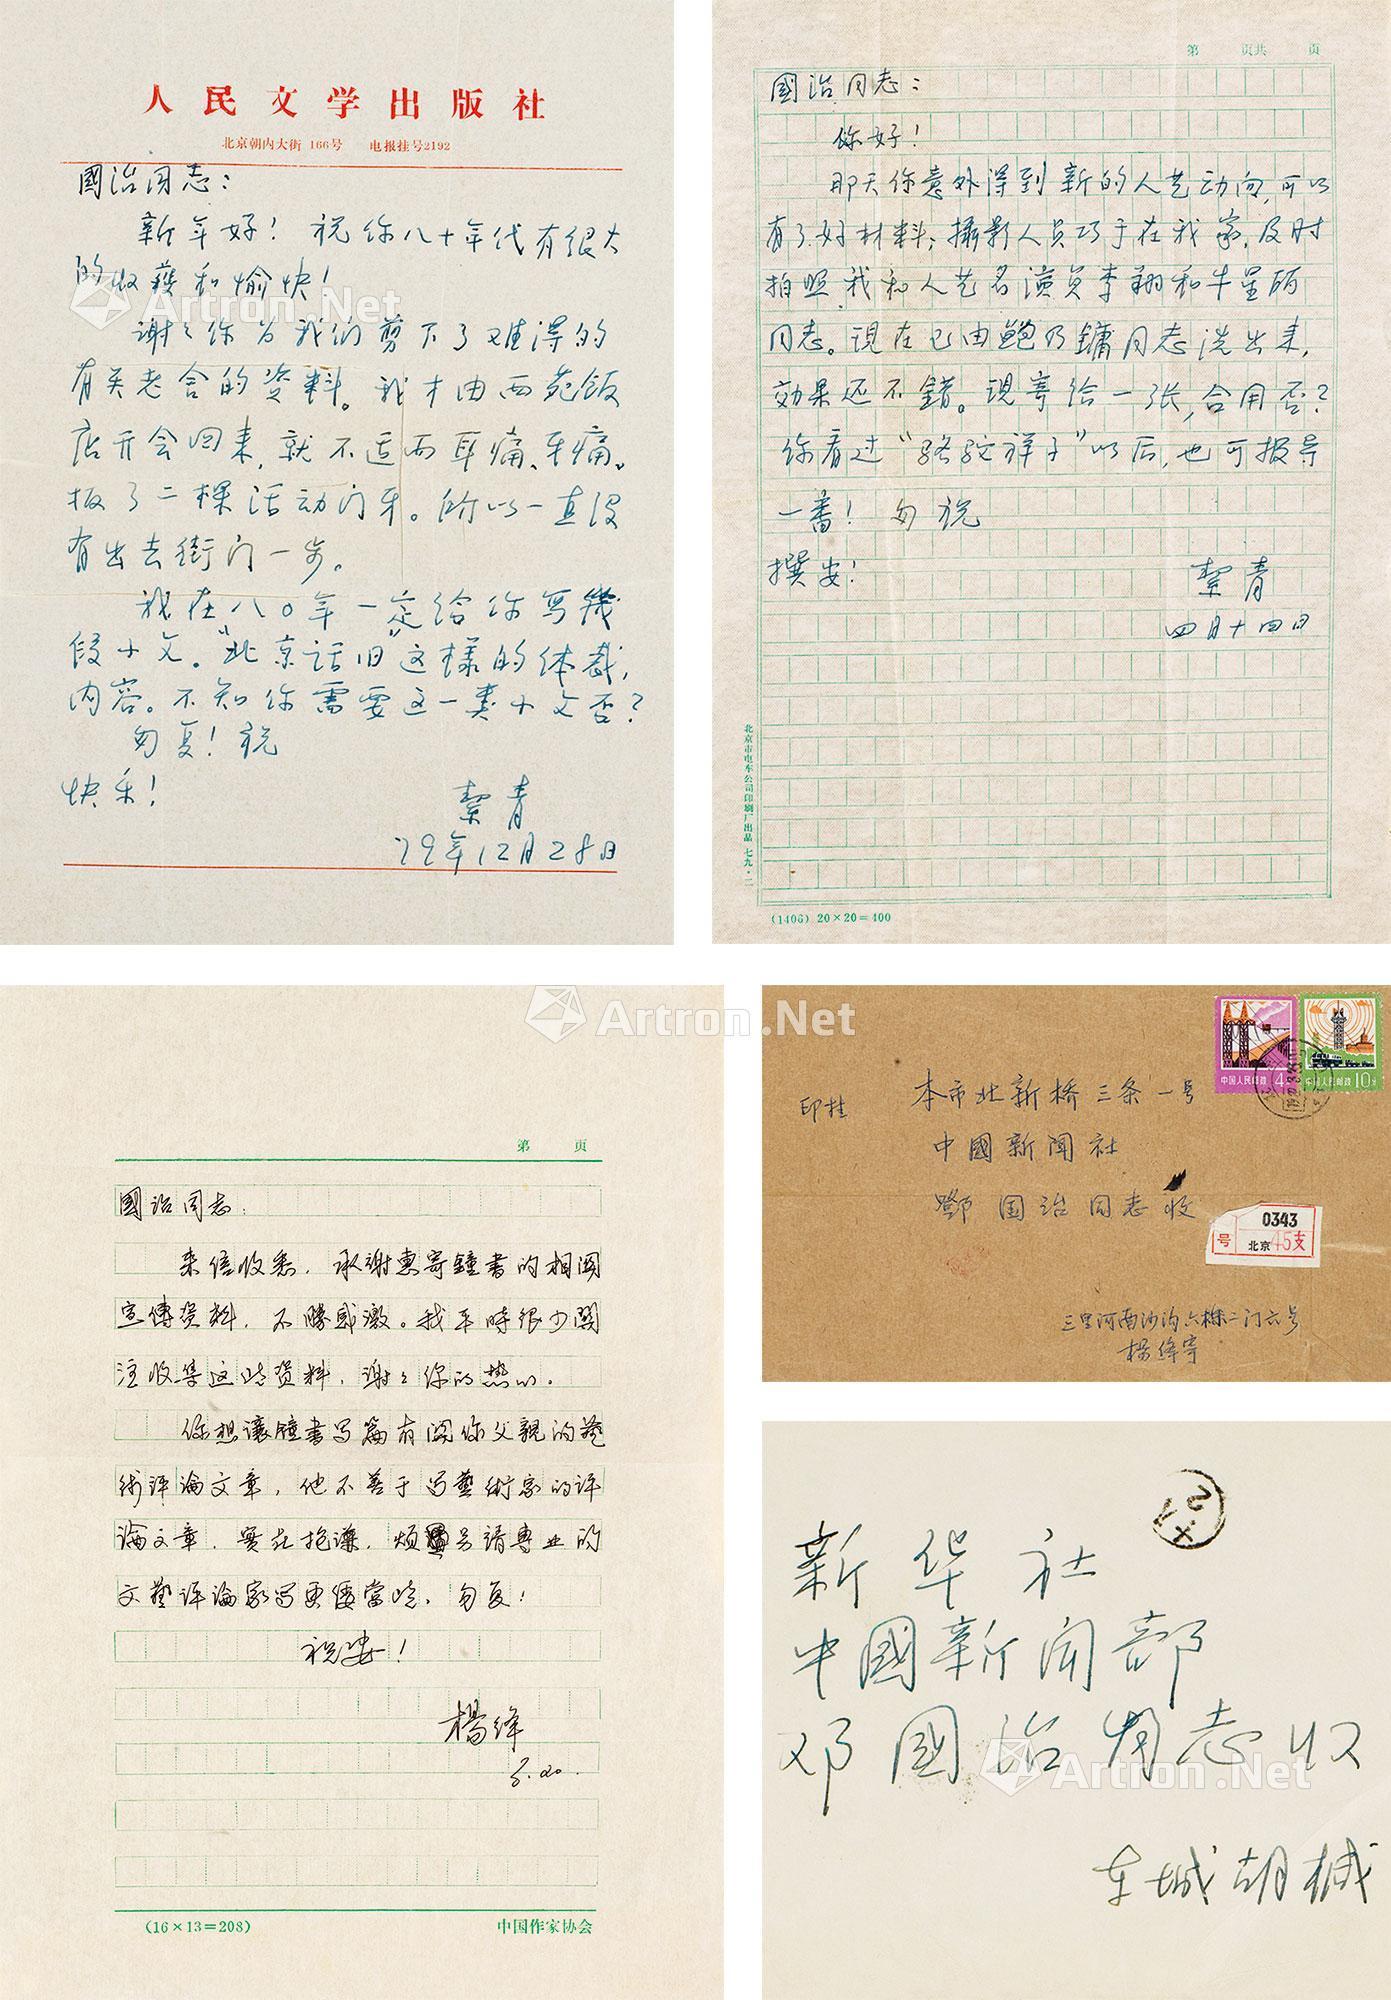 人民文学出版社
北京朝内大街 166号 电报挂号2192
國治同志：
新年好！祝你八十年代有很大
的收获和愉快！
谢々你为我们剪下了难得的
有关老舍的资料。我才由西苑饭
店开会回来，就不适而耳痛、牙痛。
拔了二棵活动门牙。所以一直没
有出去街门一步。
我在八〇年一定给你写幾
段小文。"北京话旧"这樣的体裁，
内容。不知你需要这一类小文否？
匆复！祝
快乐！
絜青
79年12月28日
第 页共 页
國治同志：
你好！
那天你意外得到新的人艺动向，可以
有了好材料；攝影人员巧于在我家，及时
拍照，我和人艺名演员李翔和牛星丽
同志。现在已由鲍乃鏞同志洗出来，
効果还不错。现寄给一张，合用否？
你看过"骆驼祥子"以后，也可报导
一番！匆祝
撰安！
絜青
四月十四日
北京市电车公司印刷厂出品 七九·二
(1406) 20×20=400
第 页
國治同志：
来信收悉，承谢惠寄鍾書的相関
宣傳资料，不勝感激。我平時很少関
注收集这些资料，谢々你的热心。
你想讓鍾書写篇有関你父親的藝
術评論文章，他不善于写藝術家的评
論文章，實在抱謙，煩另請專业的
文藝评論家写更优當些，匆复！
祝安！
楊绛
8.20.
(16×13=208)
中国作家协会
中国人民邮政 4
中国人民邮政 10分
印挂
本市北新橋三条一号
中國新闻社
鄧国治同志收
0343
号 北京45支
三里河南沙沟六栋二门六号
楊绛寄
新华社
中國新闻部
邓國治同志收
东城胡楲
Artron.Net
Artron.Net
Artron.Net
Artron.Net